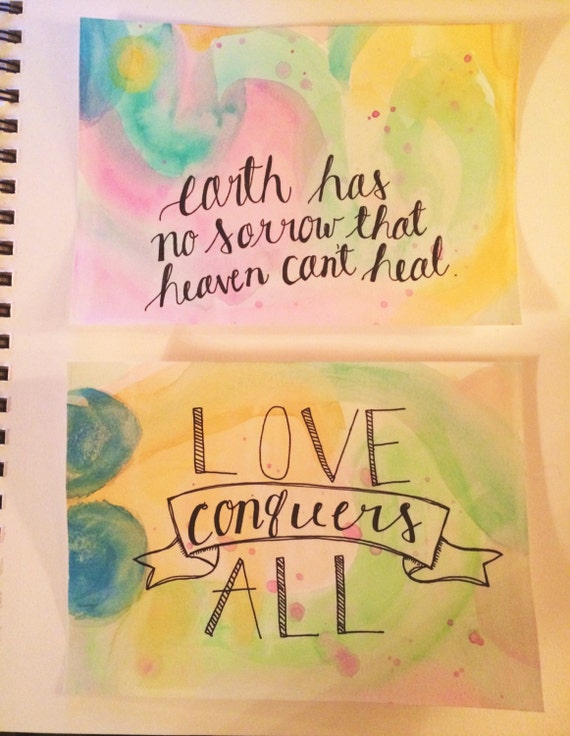 earth has
no sorrow that
heaven can't heal.
LOVE
conquers
ALL